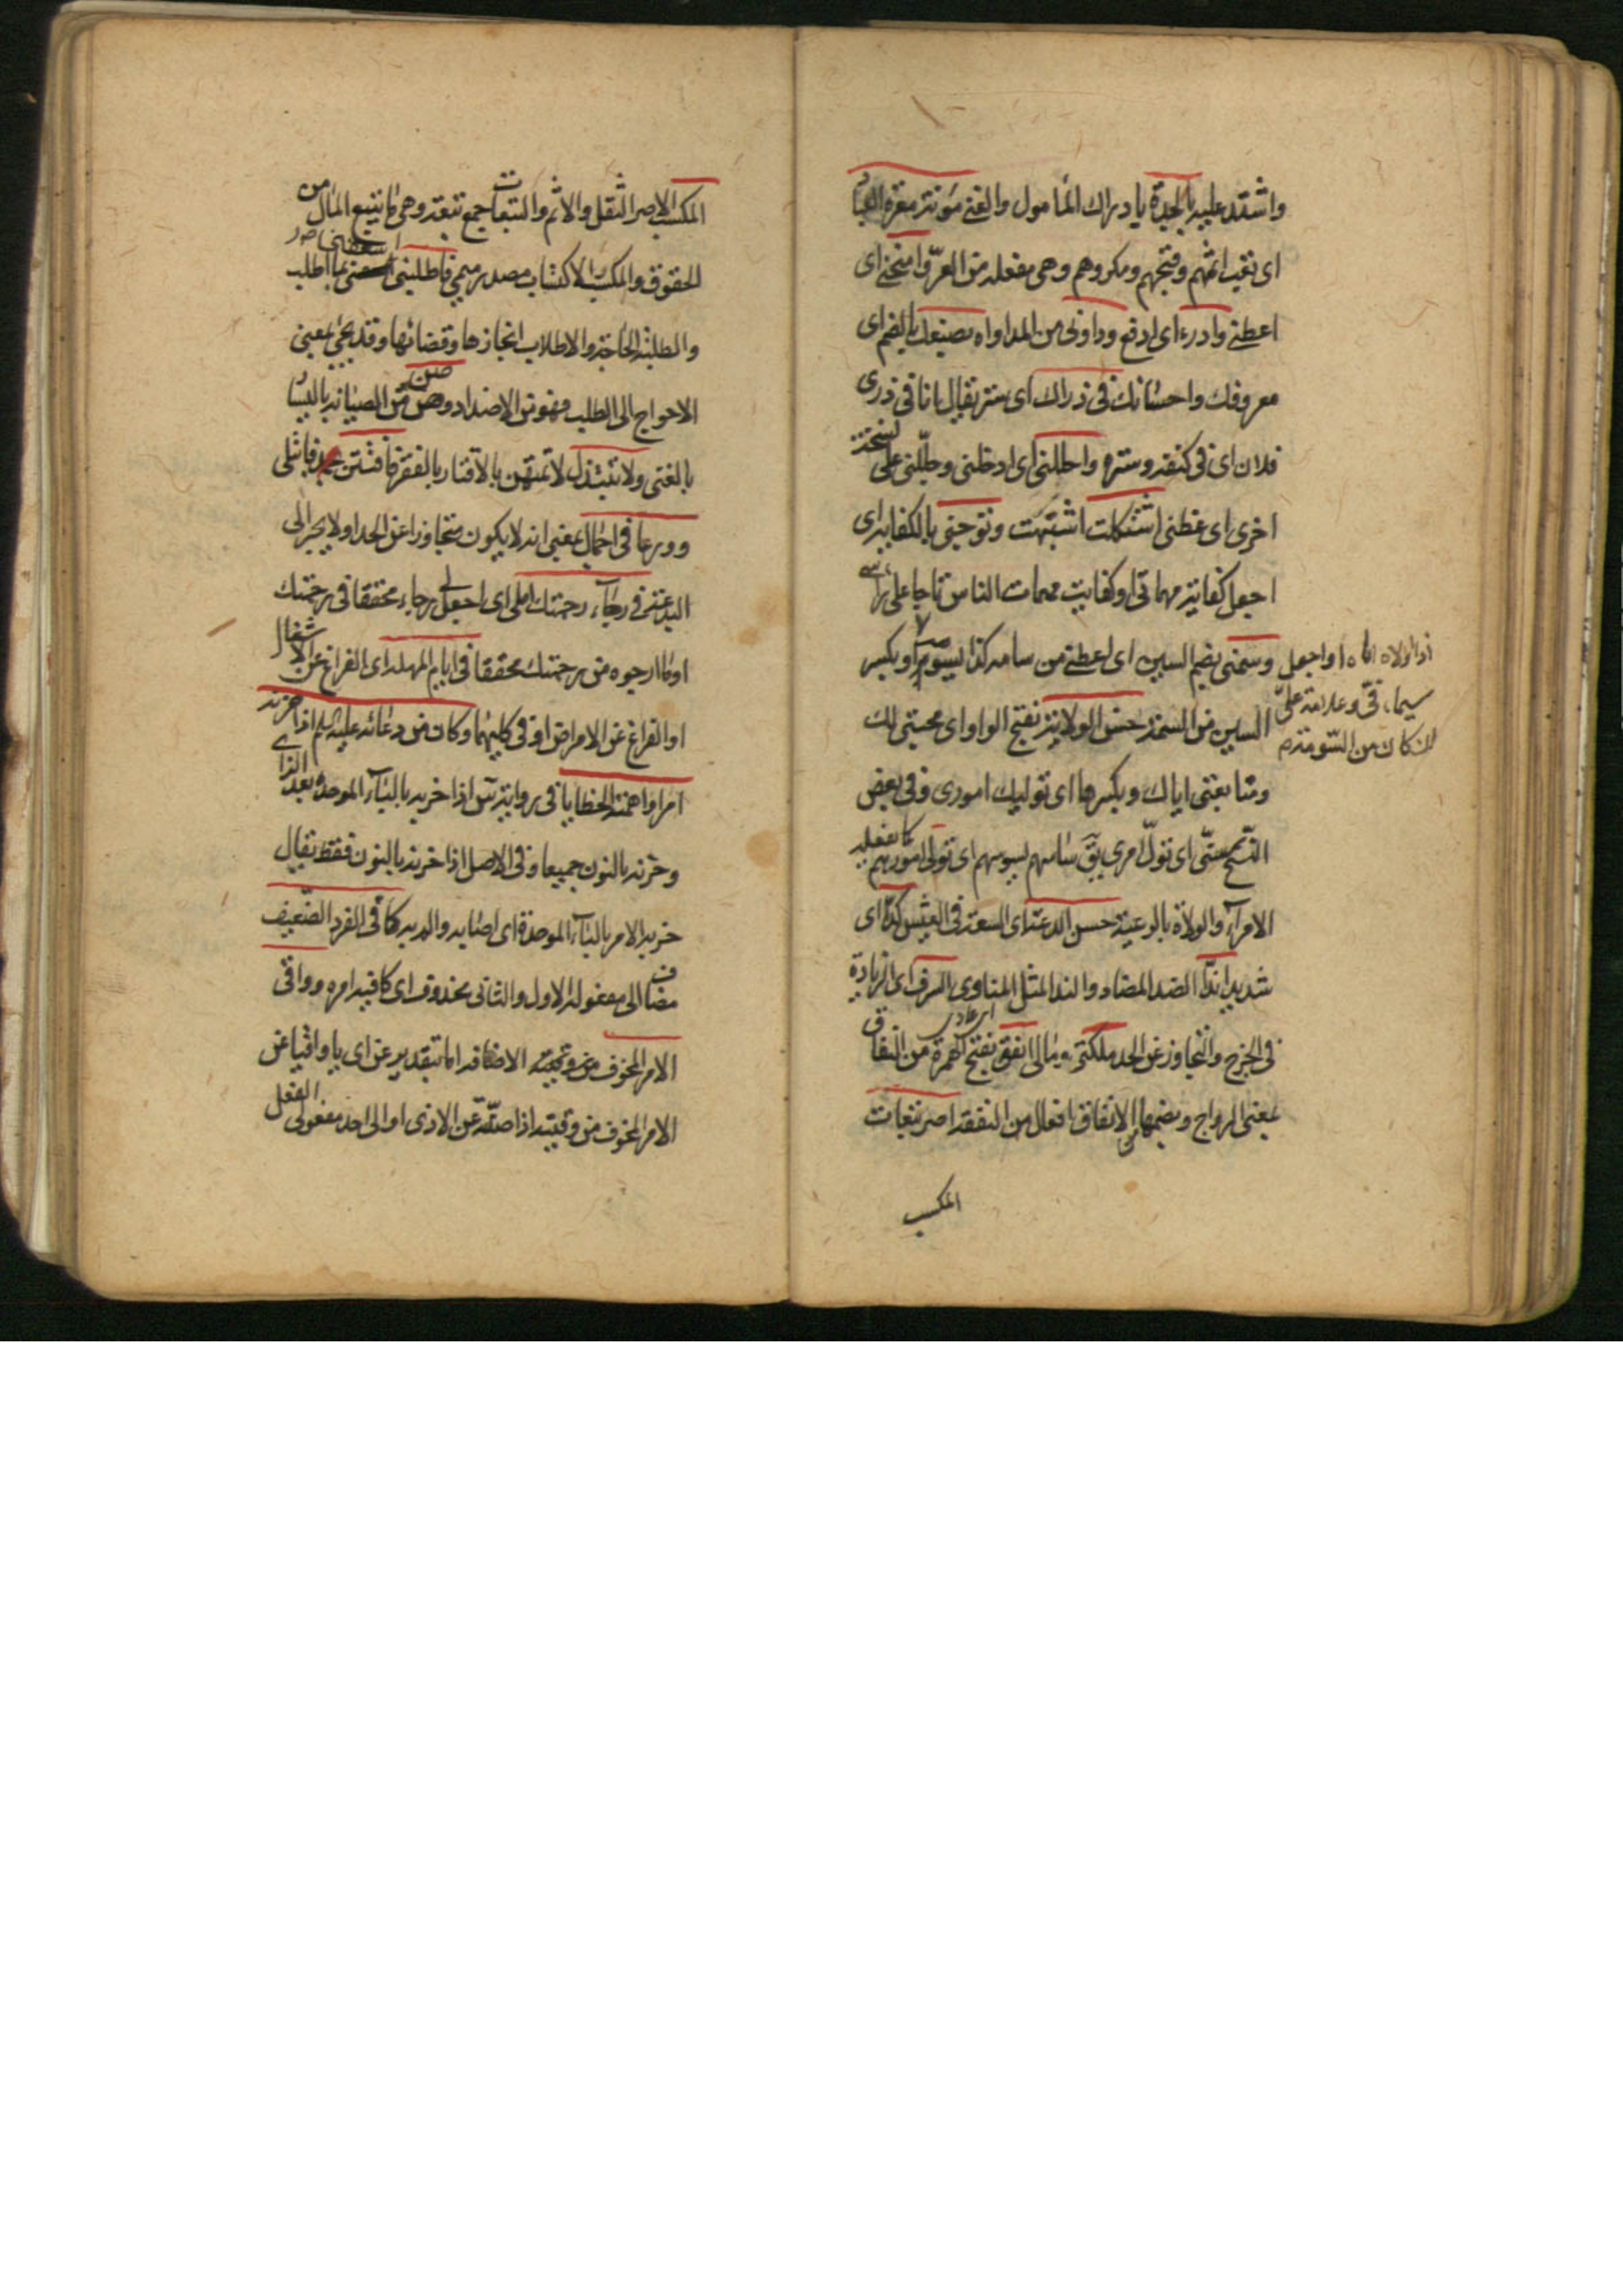 واشتد عليه بالجدة يا دراك المأمول والقنى مؤنته معرة العباد
اى نقيب اثمهم وقبحهم ومكروههم وهى مفعلة من العرّ وامنحنى اى
اعطنى وادرء اى ادفع وداونى من المداواه بصنعك بالضم اى
معروفك واحسانك فى ذراك اى ستر يقال انا فى ذرى
فلان اى فى كنفه وستره واظلنى اى ادخلنى وجلّلنى على نسخة
اخرى اى غطنى اشتكلت اشتبهت وتوجنى بالكفاية اى
اجعل كفاية مهماتى او كفايت مهمات الناس تاجا على راسى
وسمنى بضم السين اى اعطنى من سامه كذا يسومه او بكسر
السين من السمة حسن الولاية بفتح الواو اى محبتى لك
ومتابعتى اياك وبكسرها اى توليك امورى وفى بعض
النسخ سسنى اى تولّ امرى يق ساسهم يسوسهم اى تولى امورهم كما يفعله
الامرآء والولاة بالرعية حسن الدعة اى السعة فى العيش كدّا اى
شديدا ندّا الضد المضاد والند المثل المناوى السرف اى الزيادة
فى الخرج والتجاوز عن الحد ملكتى ومالى انفق بفتح الهمزة من النفاق
بمعنى الرواج وبضمها من الانفاق افعال من النفقة اصر تبعات
المكسب
او اجعل
سيماء فىّ وعلامة علىّ
ان كان من السّومة م
المكسب الاصر الثقل والاثم والتبعات جمع تبعة وهى ما يتبع المال من
الحقوق والمكسب الاكتساب مصدر ميمى فاطلبنى اسعفنى بما اطلب
والطلبة الحاجة والاطلاب انجازها وقضائها وقد يجئ بمعنى
الاحواج الى الطلب فهو من الاضداد وصن من الصيانة باليسار
بالغنى ولا تبتذل لا تمتهن بالاقتار بالفقر فافتتن فابتلى
وورعا فى اجمال يعنى انه لا يكون متجاوزا عن الحد اولا يجر الى
البدعة فى رجآء رحمتك املى اى اجعل لى رجاء محققا فى رحمتك
او ما ارجوه من رحمتك محققا فى ايام المهلة اى الفراغ عن الاشغال
او الفراغ عن الامراض او فى كليهما وكان من دعائه عليه السلم اذا حزنه
امر او اهمته الخطايا فى رواية س اذا حزبه بالبآء الموحدة بعد الزاى
وحزنه بالنون جميعا وفى الاصل اذا حزنه بالنون فقط يقال
حزبه الامر بالبآء الموحدة اى اصابه والمه كافى الفرد الضعيف
مضاف الى مفعوله الاول والثانى محذوف اى كافيه امره وواقى
الامر المخوف من وقيته الاضافة اما بتقدير عن اى يا واقيا عن
الامر المخوف من وقيته اذا صنته عن الاذى او الى احد مفعولى الفعل